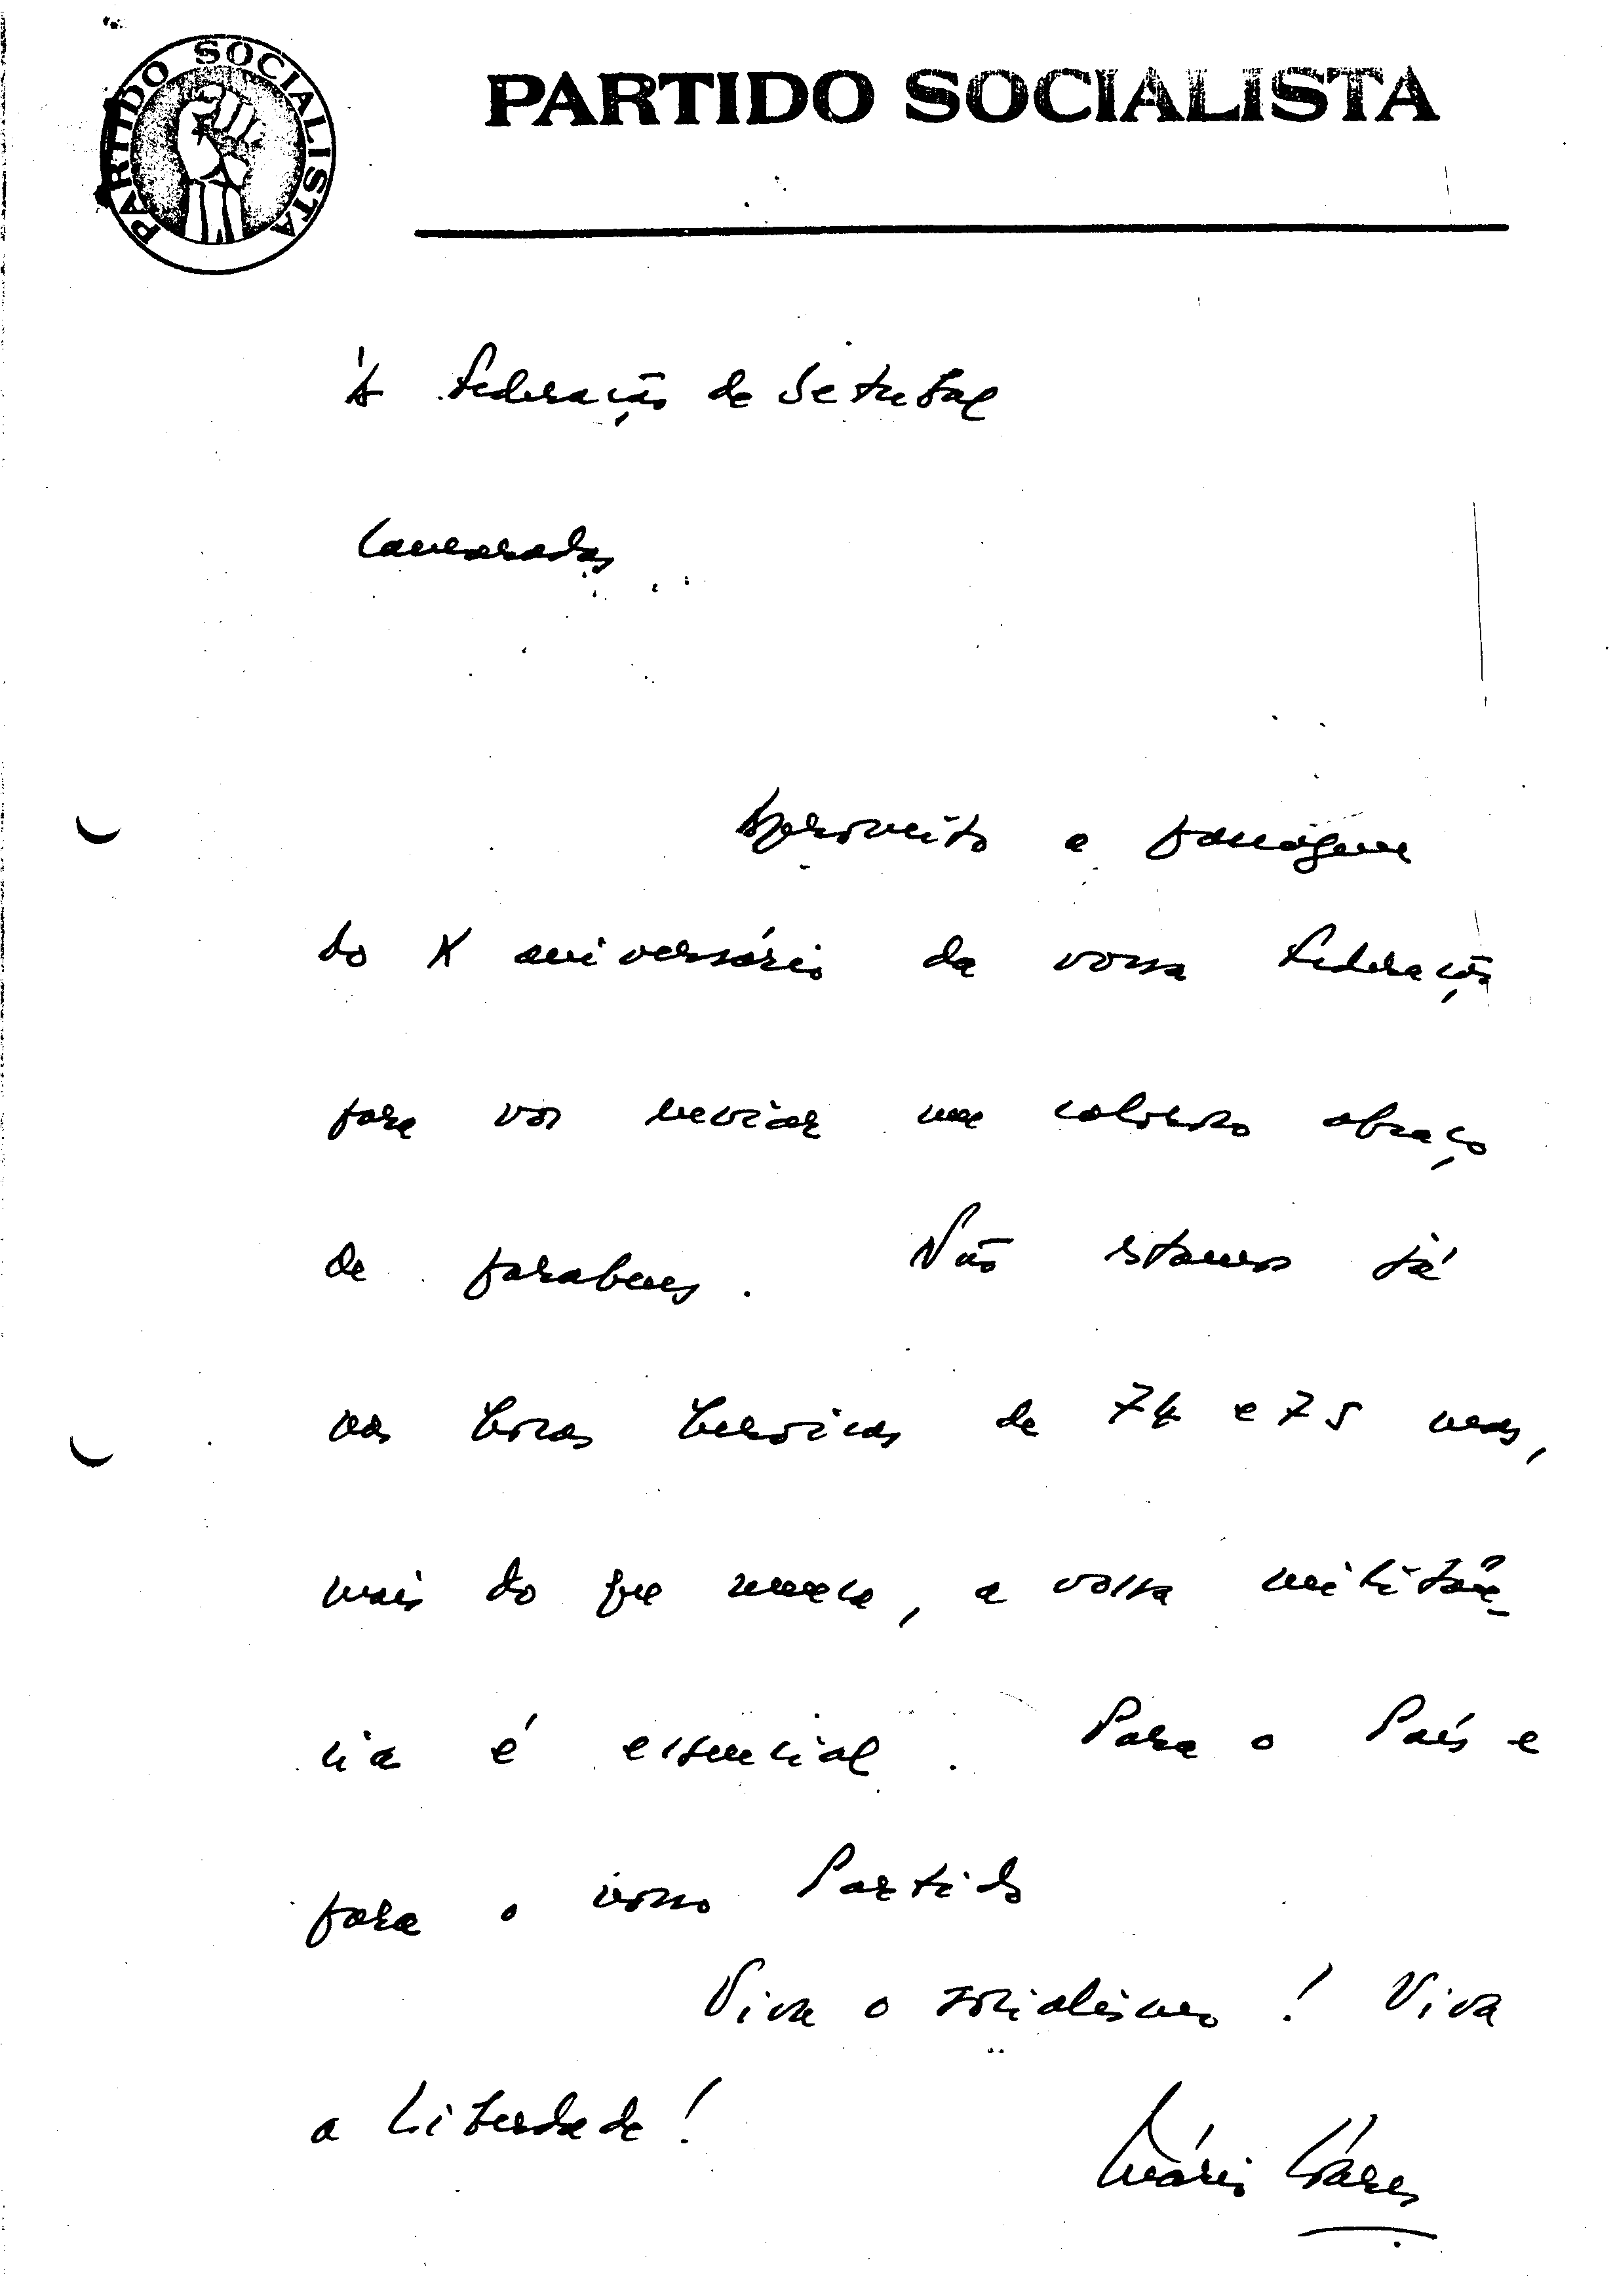 PARTIDO SOCIALISTA
PARTIDO SOCIALISTA
À Federação de Setubal
Camaradas
Aproveito a passagem
do X aniversário da vossa Federação
para vos enviar um caloroso abraço
de parabens. Não estamos já
nas horas heroicas de 74 e 75 mas,
mais do que nunca, a vossa militân-
cia é essencial. Para o País e
para o nosso Partido
Viva o socialismo! Viva
a Liberdade!
Mário Soares